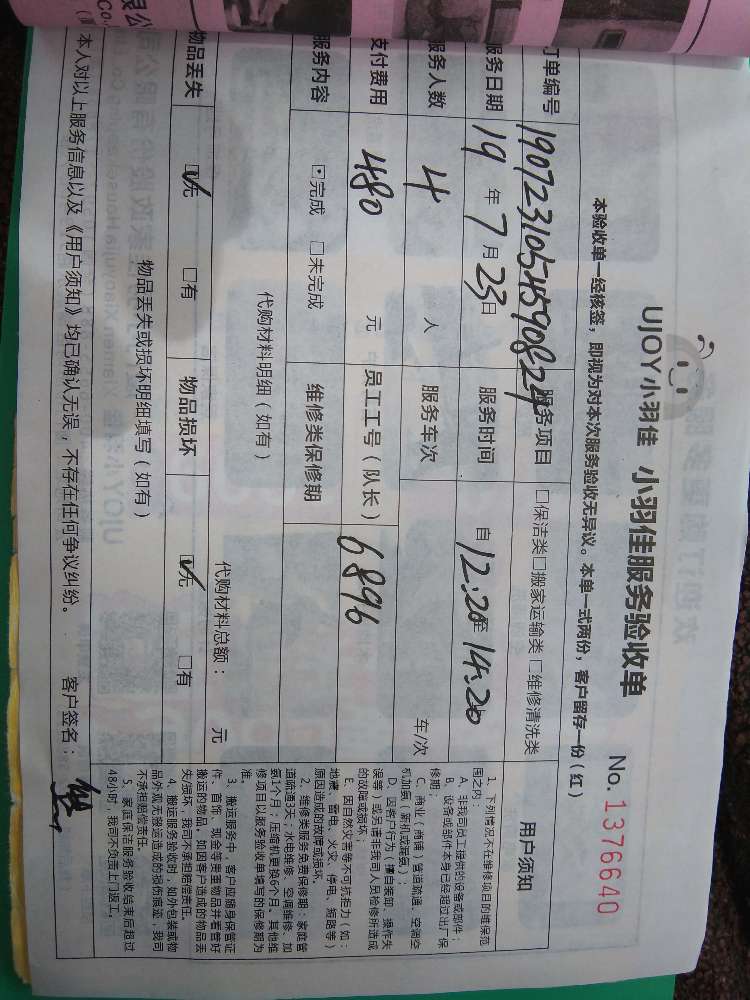 UJOY小羽佳 小羽佳服务验收单
No. 1376640
本验收单一经核签，即视为对本次服务验收无异议。本单一式两份，客户留存一份（红）
订单编号 190723105459082 服务项目 □保洁类□搬家运输类 □维修清洗类
服务日期 19 年 7 月 23 日 服务时间 自 12:20 至 14:20
服务人数 4 人 服务车次 车/次
支付费用 480 元 员工工号（队长） 6896
服务内容 ☑完成 □未完成 维修类保修期
代购材料明细（如有）
代购材料总额： 元
物品丢失 ☑无 □有 物品损坏 ☑无 □有
物品丢失或损坏明细填写（如有）
本人对以上服务信息以及《用户须知》均已确认无误，不存在任何争议纠纷。 客户签名：
用户须知
1、下列情况不在维修项目的维保范
围之内：
A、非我司员工提供的设备或部件；
B、设备或部件本身已经超过出厂保
修期；
C、商业（商铺）管道疏通，空调空
机加氟（新机或漏氟）；
D、因客户行为（擅自装卸、操作失
误等）或另请非我司人员检修所造成
的故障或损坏；
E、因自然灾害等不可抗拒力（如：
地震、雷电、火灾、停电、短路等）
原因造成的故障或损坏。
2、维修类服务免费保修期：家庭管
道疏通3天；水电维修、空调维修、加
氨1个月；压缩机更换6个月。其他维
修项目以服务验收单填写的保修期为
准。
3、搬运服务中，客户应随身保管证
件、首饰、现金等贵重物品并看管好
搬运的物品。如因客户造成的物品丢
失/损坏，我司不承担赔偿责任。
4、搬运服务验收时，如外包装或物
品外观无搬运造成的损伤痕迹，我司
不承担赔偿责任。
5、家庭保洁服务验收结束后超过
48小时，我司不负责上门返工。